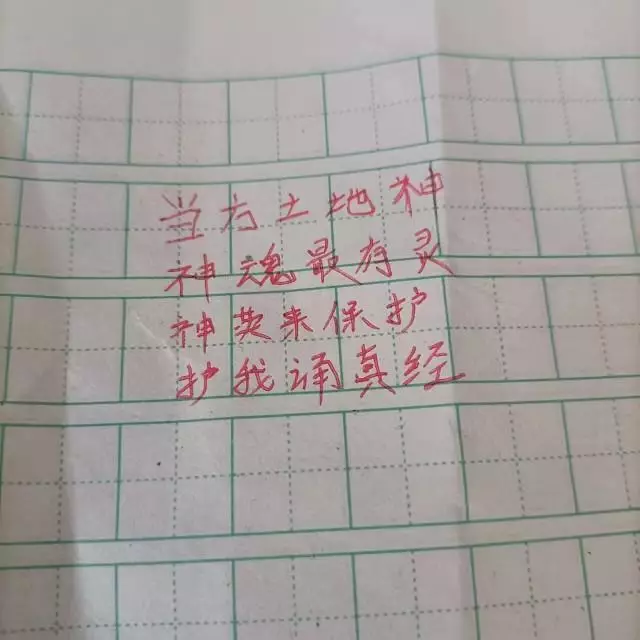 当方土地神
神魂最有灵
神灵来保护
护我诵真经